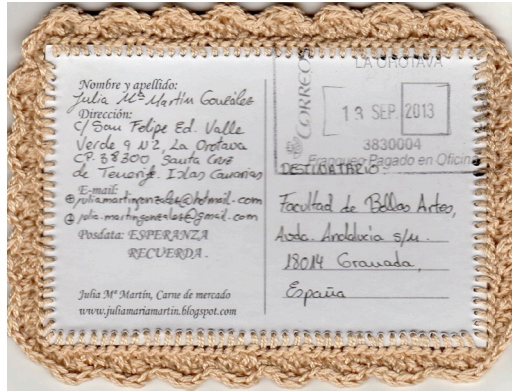 Nombre y apellido:
Julia Mª Martín González
Dirección:
C/ San Felipe Ed. Valle
Verde 9 N2, La Orotava
CP. 38300, Santa Cruz
de Tenerife. Islas Canarias
E-mail:
juliamartingonzales@hotmail.com
julia.martingonzales@gmail.com
Posdata: ESPERANZA
RECUERDA.
Julia Mª Martín, Carne de mercado
www.juliamariamartin.blogspot.com
LA OROTAVA
CORREOS
13 SEP. 2013
3830004
Franqueo Pagado en Oficina
DESTINATARIO:
Facultad de Bellas Artes,
Avda. Andalucía s/n.
18014 Granada,
España